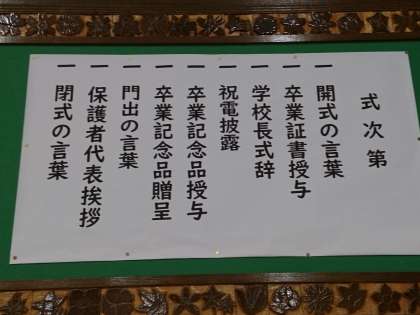 式次第
一 開式の言葉
一 卒業証書授与
一 学校長式辞
一 祝電披露
一 卒業記念品授与
一 卒業記念品贈呈
一 門出の言葉
一 保護者代表挨拶
一 閉式の言葉